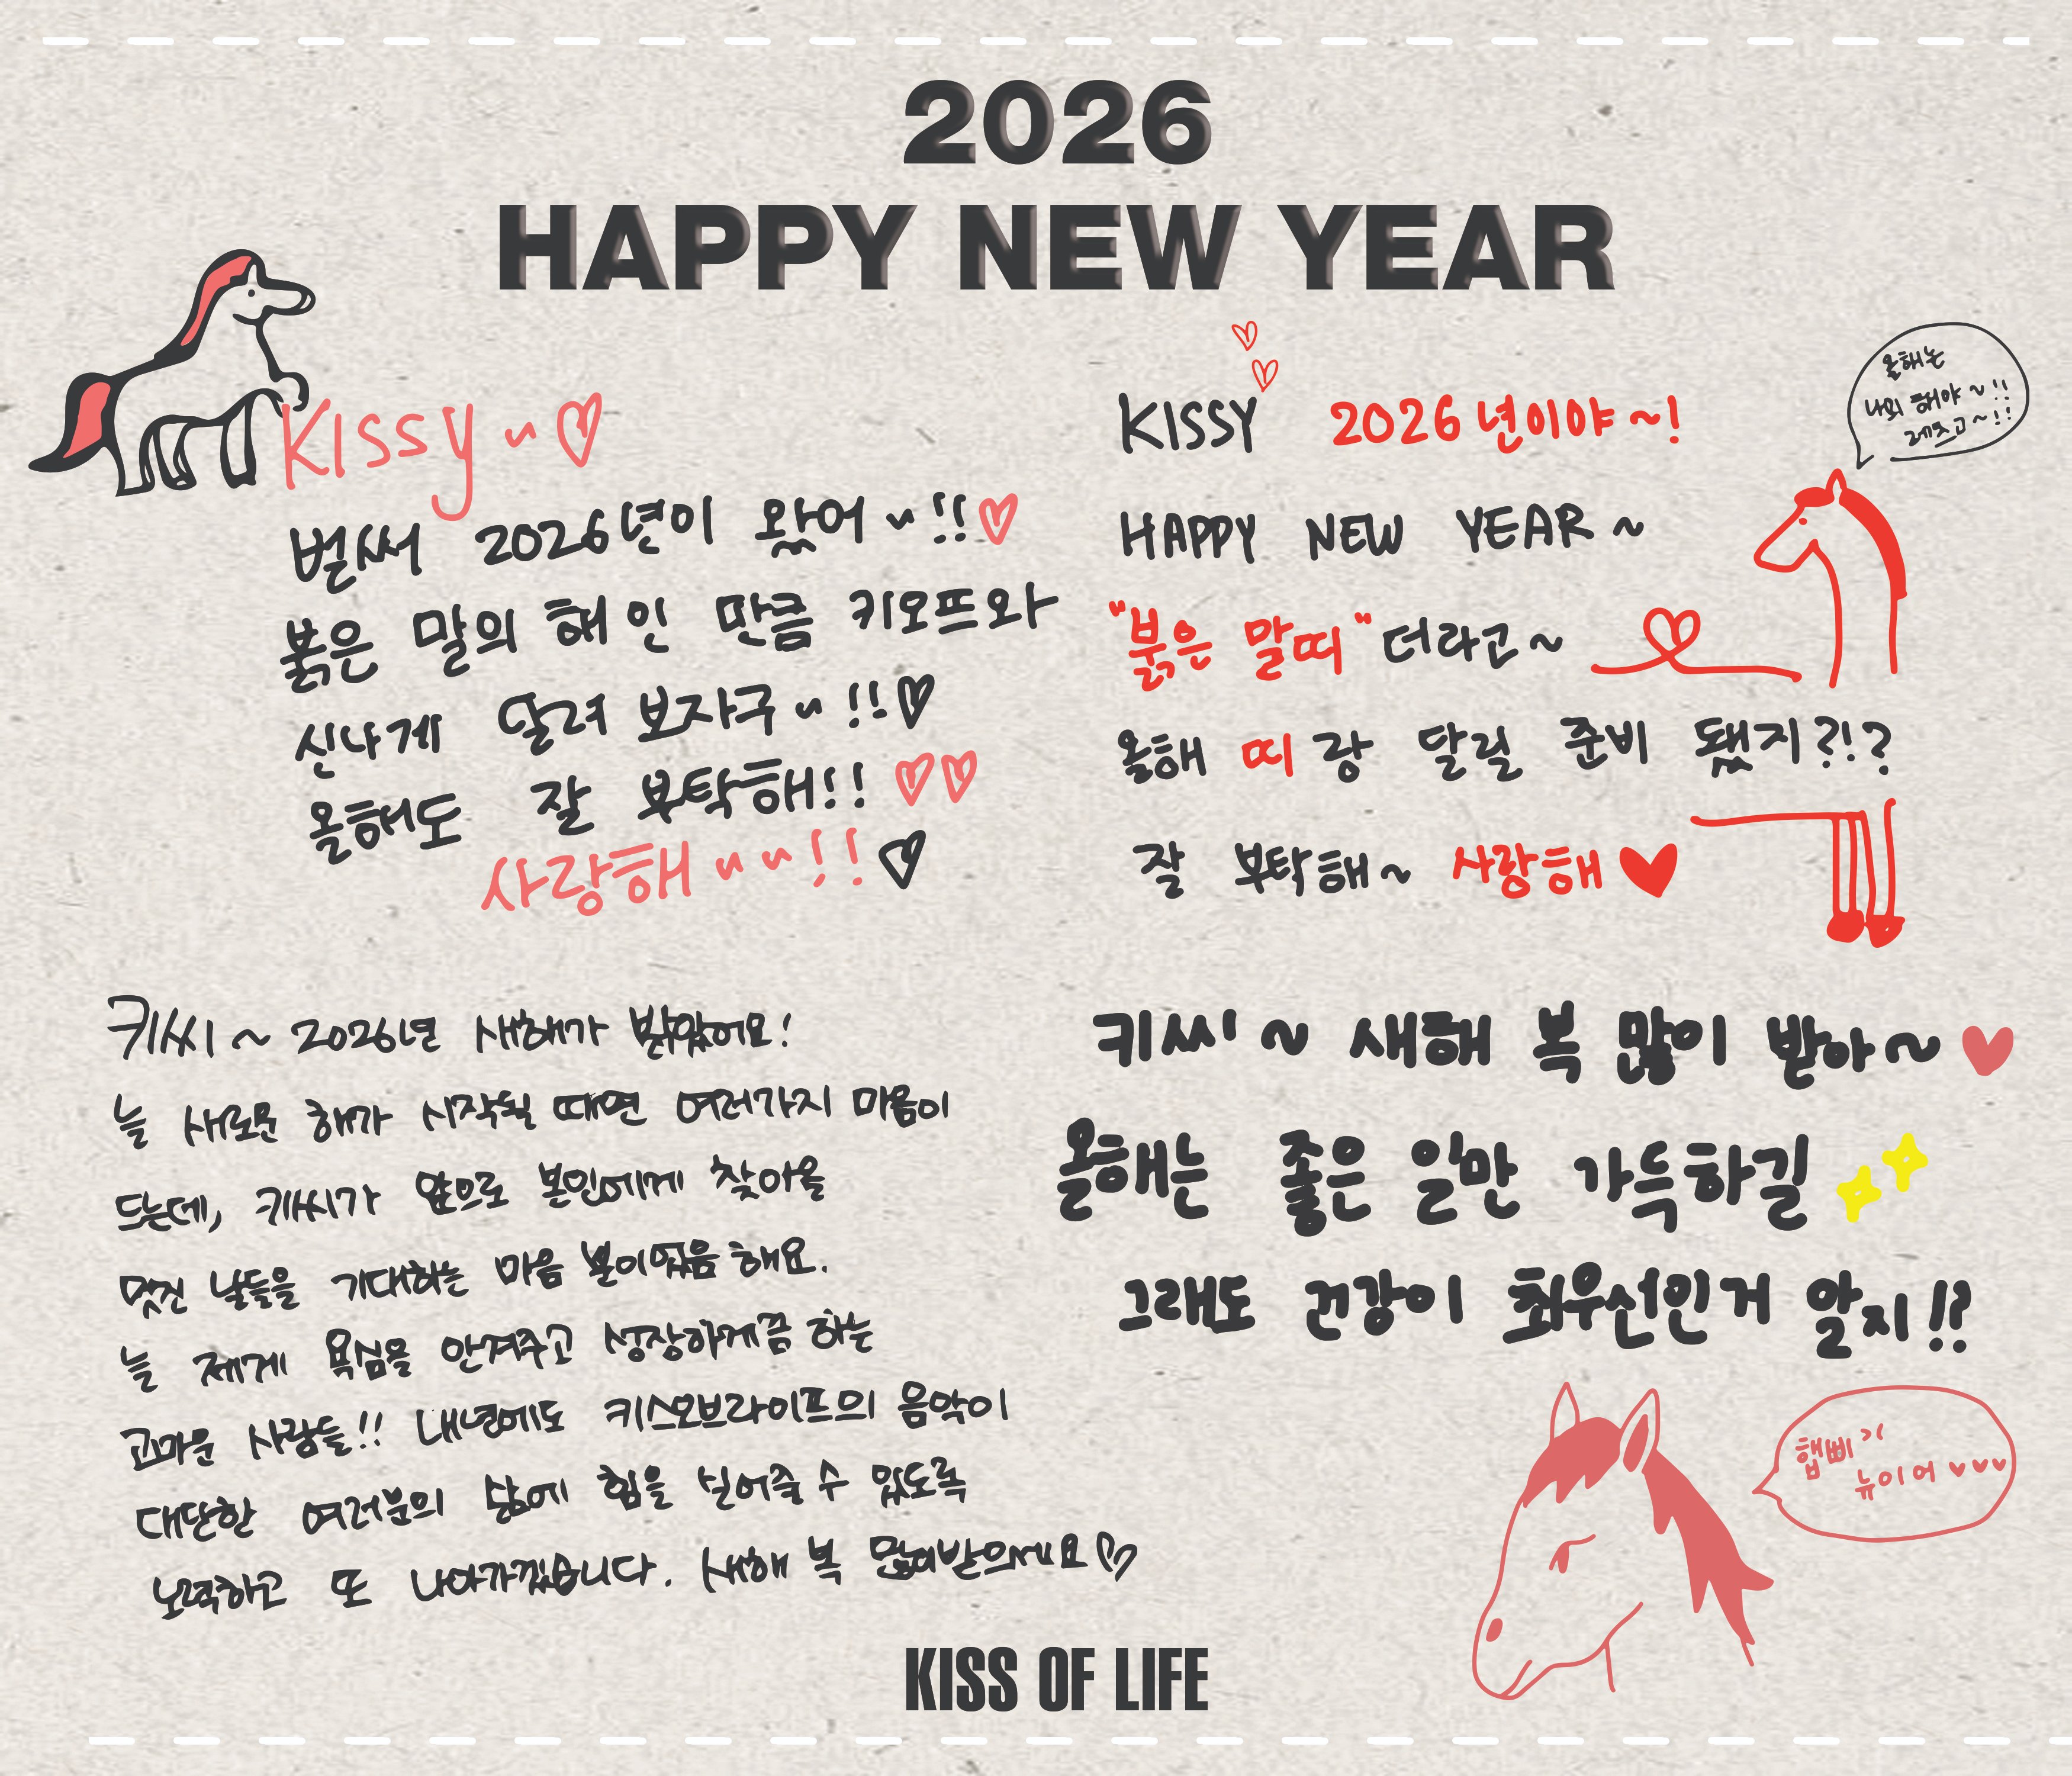 2026
HAPPY NEW YEAR
Kissy ~ ♡
벌써 2026년이 왔어 ~!!♡
붉은 말의 해인 만큼 키오프와
신나게 달려 보자구 ~!!♡
올해도 잘 부탁해!! ♡♡
사랑해 ~~!!♡
KISSY 2026년이야~!
HAPPY NEW YEAR ~
"붉은 말띠" 더라고~
올해 띠랑 달릴 준비 됐지?!?
잘 부탁해~ 사랑해 ♥
올해는
나의 해야~!!
레츠고~!!
키씨~ 2026년 새해가 밝았어요!
늘 새로운 해가 시작될 때면 여러가지 마음이
드는데, 키씨가 앞으로 본인에게 찾아올
멋진 날들을 기대하는 마음 뿐이었음 해요.
늘 제게 욕심을 안겨주고 성장하게끔 하는
고마운 사람들!! 내년에도 키스오브라이프의 음악이
대단한 여러분의 삶에 힘을 실어줄 수 있도록
노력하고 또 나아가겠습니다. 새해 복 많이받으세요♡
키씨~ 새해 복 많이 받아~ ♥
올해는 좋은 일만 가득하길
그래도 건강이 최우선인거 알지!?
햅삐
뉴이어 ♥♥♥
KISS OF LIFE